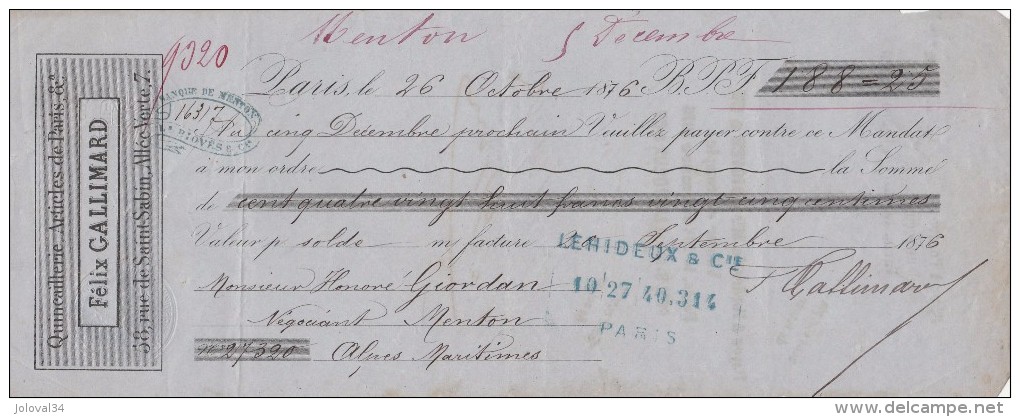 Menton 5 Décembre
9320
Paris, le 26 Octobre 1876 B.P.F. 188=25
BANQUE DE MENTON
16317
& CIE
au cinq Décembre prochain Veuillez payer contre ce Mandat
à mon ordre la Somme
de cent quatre vingt huit francs vingt cinq centimes
Valeur p solde m/ facture Septembre 1876
LEHIDEUX & CIE
10 27 40.314
PARIS
F Gallimard
Monsieur Honoré Giordan
Négociant Menton
No 27320 Alpes Maritimes
Quincaillerie Articles de Paris &c.
Félix GALLIMARD
58, rue de Saint-Sabin, Allée Verte, 7.
joloval34
delcampe.net